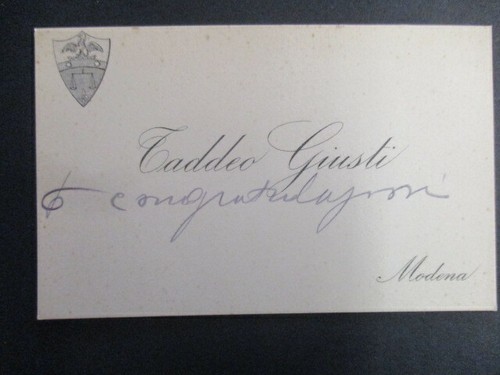 Taddeo Giusti
congratulazioni
Modena